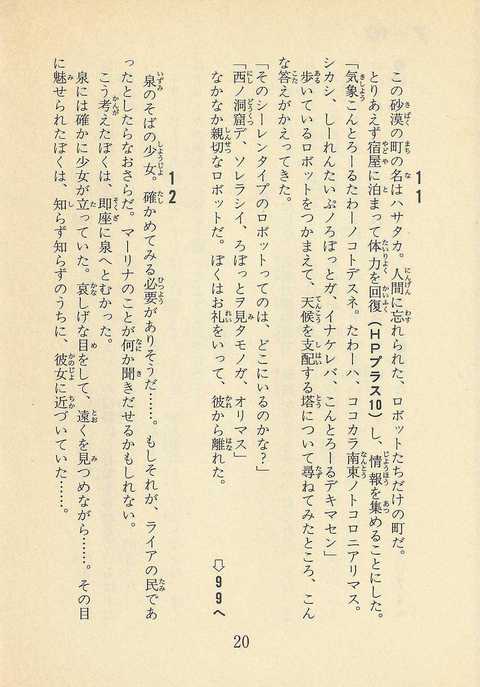 11
この砂漠の町の名はハサタカ。人間に忘れられた、ロボットたちだけの町だ。
とりあえず宿屋に泊まって体力を回復(HPプラス10)し、情報を集めることにした。
「気象こんとろーるたわーノコトデスネ。たわーハ、ココカラ南東ノトコロニアリマス。
シカシ、しーれんたいぷノろぼっとガ、イナケレバ、こんとろーるデキマセン」
歩いているロボットをつかまえて、天候を支配する塔について尋ねてみたところ、こん
な答えがかえってきた。
「そのシーレンタイプのロボットってのは、どこにいるのかな?」
「西ノ洞窟デ、ソレラシイ、ろぼっとヲ見タモノガ、オリマス」
なかなか親切なロボットだ。ぼくはお礼をいって、彼から離れた。
⇨99へ
12
泉のそばの少女。確かめてみる必要がありそうだ……。もしそれが、ライアの民であ
ったとしたらなおさらだ。マーリナのことが何か聞きだせるかもしれない。
こう考えたぼくは、即座に泉へとむかった。
泉には確かに少女が立っていた。哀しげな目をして、遠くを見つめながら……。その目
に魅せられたぼくは、知らず知らずのうちに、彼女に近づいていた……。
20